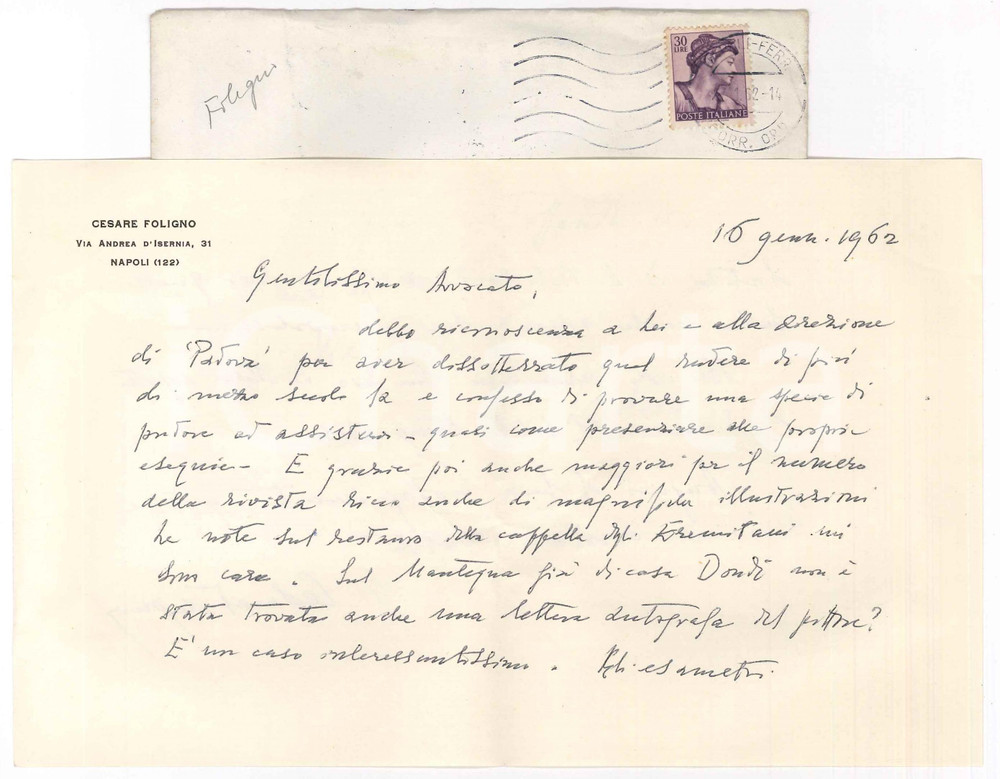 Foligno
30
LIRE
POSTE ITALIANE
CESARE FOLIGNO
VIA ANDREA D'ISERNIA, 31
NAPOLI (122)
16 genn. 1962
Gentilissimo Avvocato,
debbo riconoscenza a Lei e alla direzione
di 'Padova' per aver dissotterrato quel rudere di più
di mezzo secolo fa e confesso di provare una specie di
pudore ad assistervi - quasi come presenziare alle proprie
esequie - E grazie poi anche maggiori per il numero
della rivista ricca anche di magnifiche illustrazioni
Le note sul restauro della cappella degli Eremitani mi
son care. Sul Mantegna già di casa Dondi non è
stata trovata anche una lettera autografa del pittore?
E' un caso interessantissimo. Gli esametri